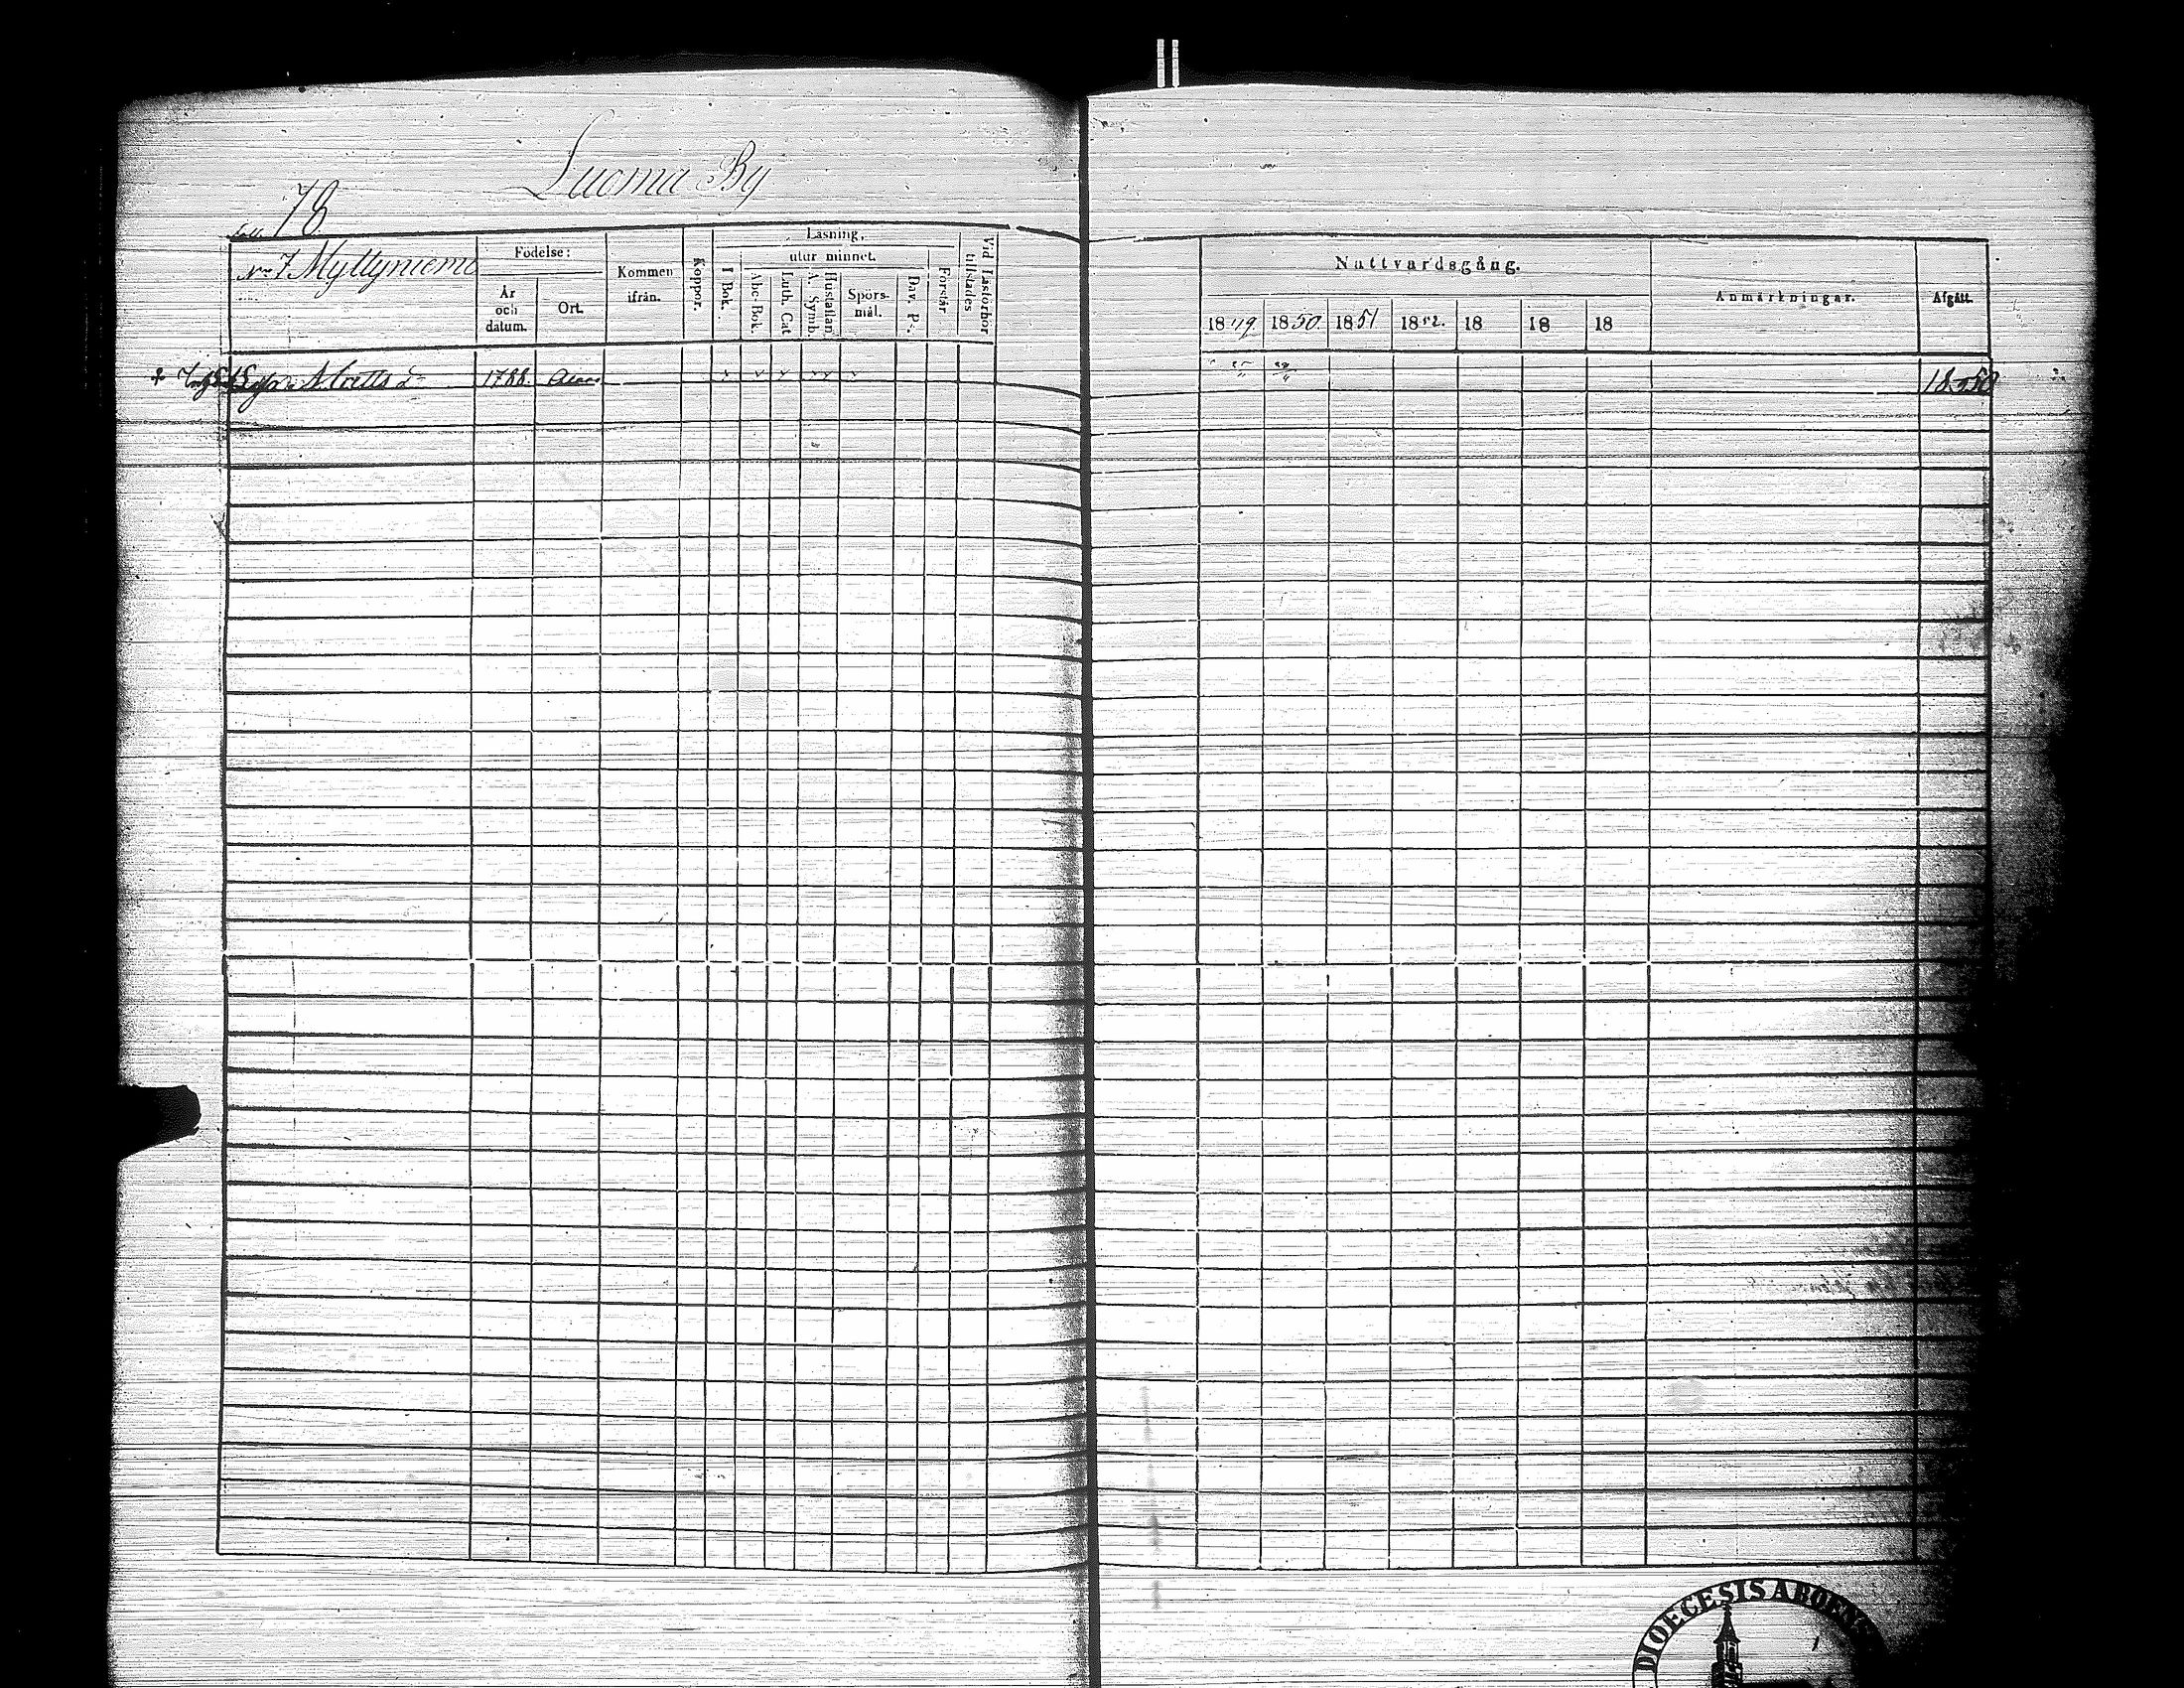 Luoma By
78
No 7 Myllyniemi
Födelse:
År och datum.
Ort.
Kommen ifrån.
Koppor.
Läsning,
I Bok.
utur minnet.
Abc-Bok.
Luth. Cat.
A. Symb.
Hustaflan
Spörsmål.
Dav. Ps.
Förstår
Vid Läsförhör tillstädes
Nattvardsgång.
1849. 1850. 1851 1852. 18 18 18
Anmärkningar.
Afgått.
1788.
1850
DIOECESIS ABOENS